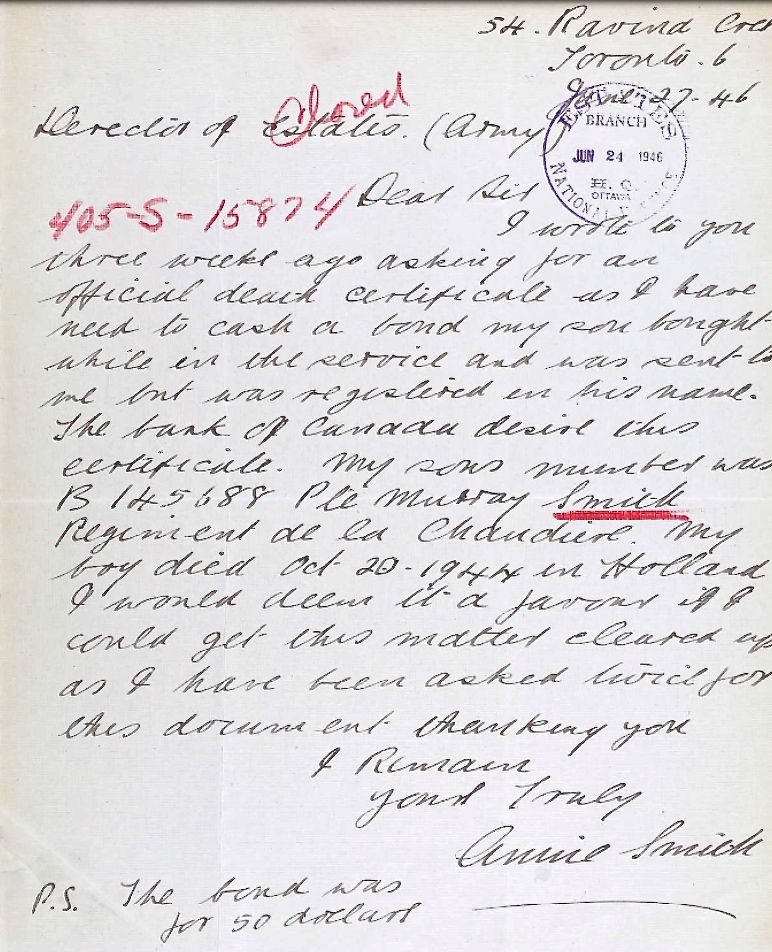 54. Ravind Cres
Toronto. 6
June 27-46
Closed
Derector of Estates. (Army)
ESTATES
BRANCH
JUN 24 1946
H. Q.
OTTAWA
NATIONAL DEFENCE
Dear Sir
405-S-15874
I wrote to you
three weeks ago asking for an
official death certificate as I have
need to cash a bond my son bought
while in the service and was sent to
me but was registered in his name.
The bank of Canada desire this
certificate. My sons number was
B 145688 Pte Murray Smith
Regiment de la Chaudiere. My
boy died Oct 20-1944 in Holland
I would deem it a favour if I
could get this matter cleared up
as I have been asked twice for
this document thanking you
I Remain
yours Truly
Annie Smith
P.S. The bond was
for 50 dollars